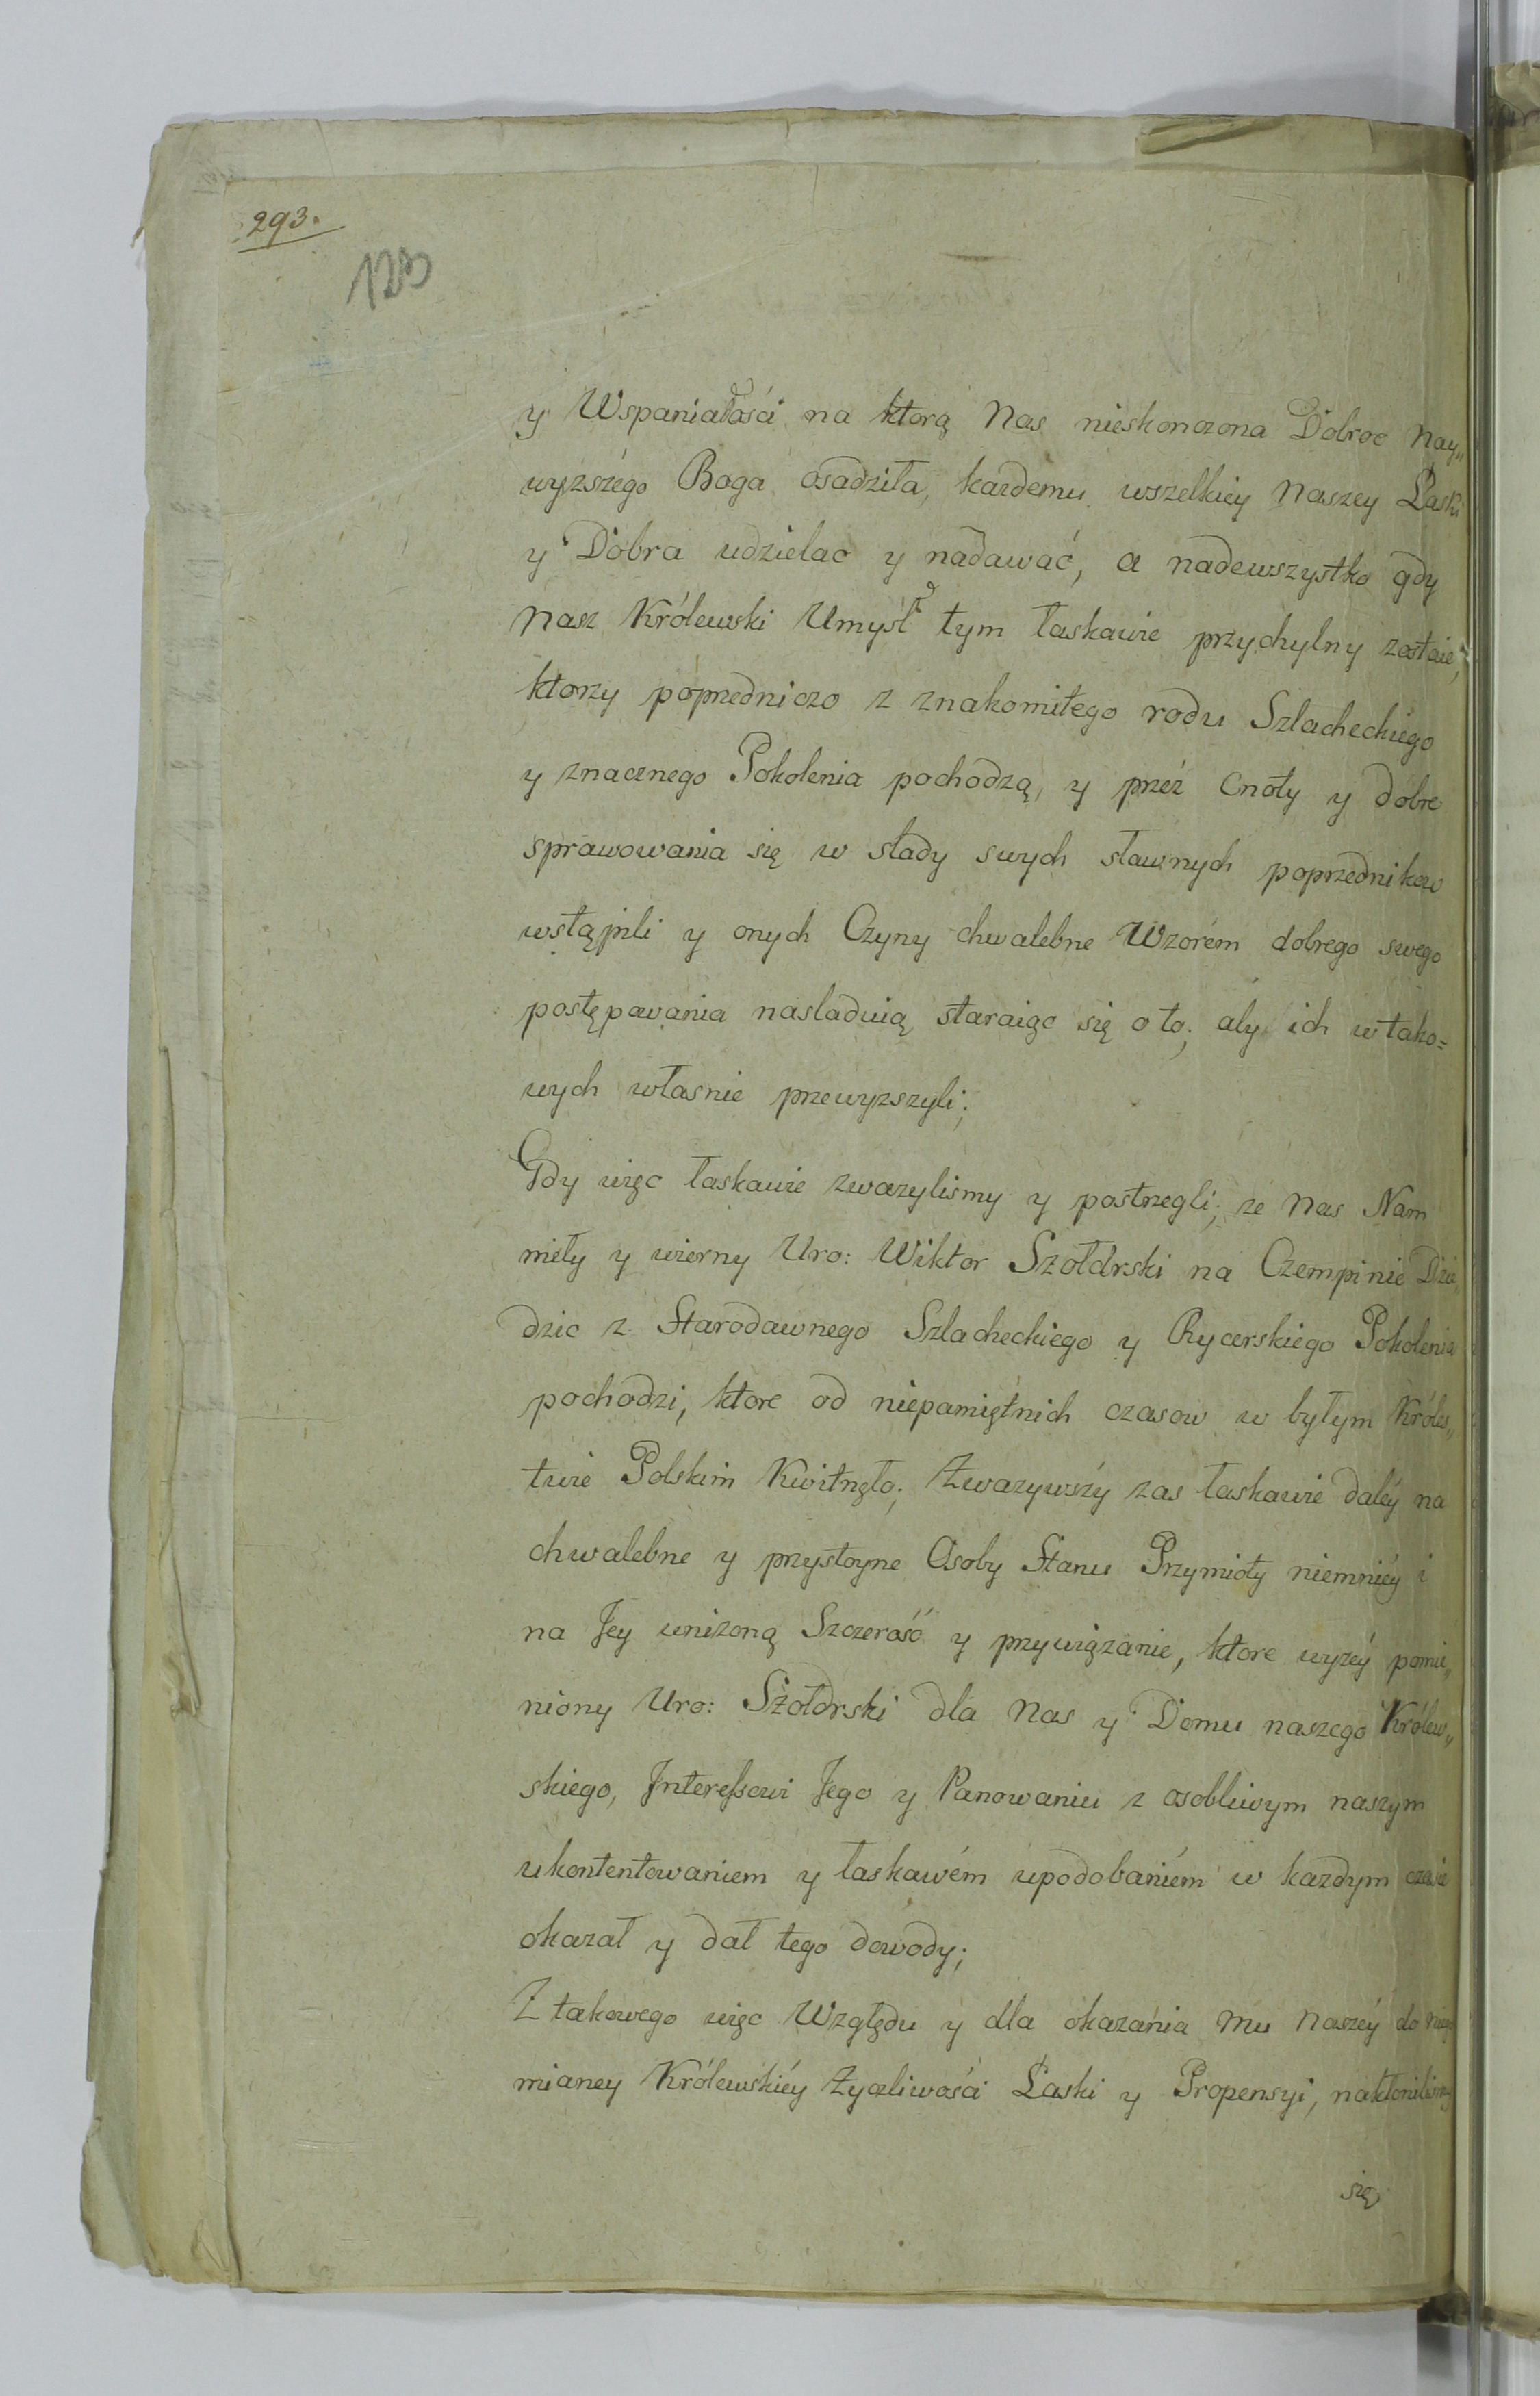 293.
123
y Wspaniałości na ktorą Nas nieskonczona Dobroc nay„
wyzszégo Boga osadziła, kazdemu wszelkiey Naszey Łaski
y Dobra udzielac y nadawać, a nadewszystko gdy
Nasz Królewski Umysł tym łaskawie przychylny zostaie,
ktorzy popredniczo z znakomitego rodu Szlacheckiego
y znacznego Pokolenia pochodzą, y przéz Cnoty y dobre
sprawowania się w slady swych sławnych poprzednikow
wstąpili y onych Czyny chwalebne Wzorém dobrego swego
postępowania nasladuią, staraiąc się o to; aby ich w tako=
wych własnie przewyzszyli;
Gdy więc łaskawie zwazylismy y postrzegli; ze Nas Nam
miły y wierny Uro: Wiktor Szołdrski na Czempinie Dzie„
dzic z Starodawnego Szlacheckiego y Rycerskiego Pokolenia
pochodzi, ktore od niepamiętnich czasow w byłym Króles„
twie Polskim Kwitnęło; Zwazywszy zas łaskawie daléy na
chwalebne y przystoyne Osoby Stanu Przymioty niemniéy i
na Jey unizoną Szczerość y przywiązanie, ktore wyzéy pomie„
niony Uro: Szołdrski dla Nas y Domu naszego Królew„
skiego, Interessowi Jego y Panowaniu z osobliwym naszym
ukontentowaniem y łaskawém upodobaniém w kazdym czasie
okazał y dał tego dowody;
Z takowego więc Względu y dla okazania mu Naszéy do niego
mianey Królewskiéy Zyczliwości Łaski y Propensyi, nakłonilismy
się